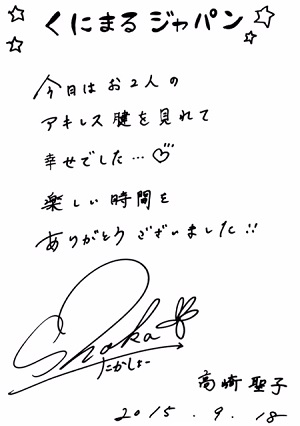 くにまるジャパン
今日はお2人の
アキレス腱を見れて
幸せでした…♡
楽しい時間を
ありがとうございました!!
Shoka
たかしょー
高崎聖子
2015.9.18